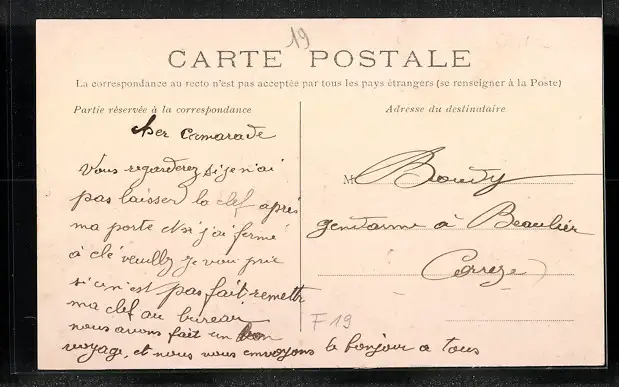 19
CARTE POSTALE
La correspondance au recto n'est pas acceptée par tous les pays étrangers (se renseigner à la Poste)
Partie réservée à la correspondance
cher camarade
Vous regarderez si je n'ai
pas laisser la clef après
ma porte et si j'ai fermé
à clé veuillz je vou prie
si ce n'est pas fait remettr
ma clef au bureau
nous avons fait un bon
voyage, et nous vous envoyons le bonjour a tous
Adresse du destinataire
M Boudy
gendarme à Beaulieu
Correze
F 19